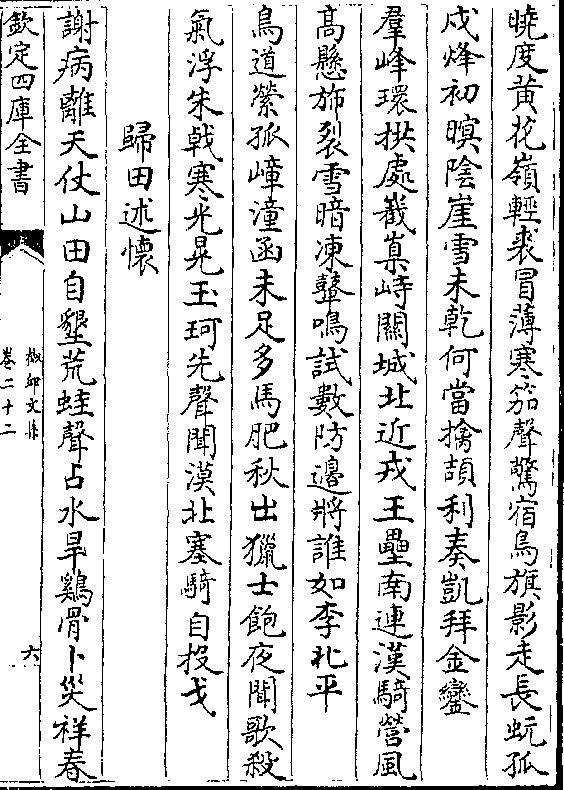 曉度黄花嶺輕裘冒薄寒笳聲驚宿鳥旗影走長蚖孤
戍烽初暝陰崖雪未乾何當擒頡利奏凱拜金鑾
羣峰環拱處嶻嵲峙關城北近戎王壘南連漢騎營風
高懸斾裂雪暗凍鼙鳴試數防邊將誰如李北平
鳥道縈孤嶂潼函未足多馬肥秋出獵士飽夜聞歌殺
氣浮朱戟寒光晃玉珂先聲聞漠北塞騎自投戈
歸田述懷
謝病離天仗山田自墾荒蛙聲占水旱鷄骨卜災祥春
欽定四庫全書
文集
卷二十二
六